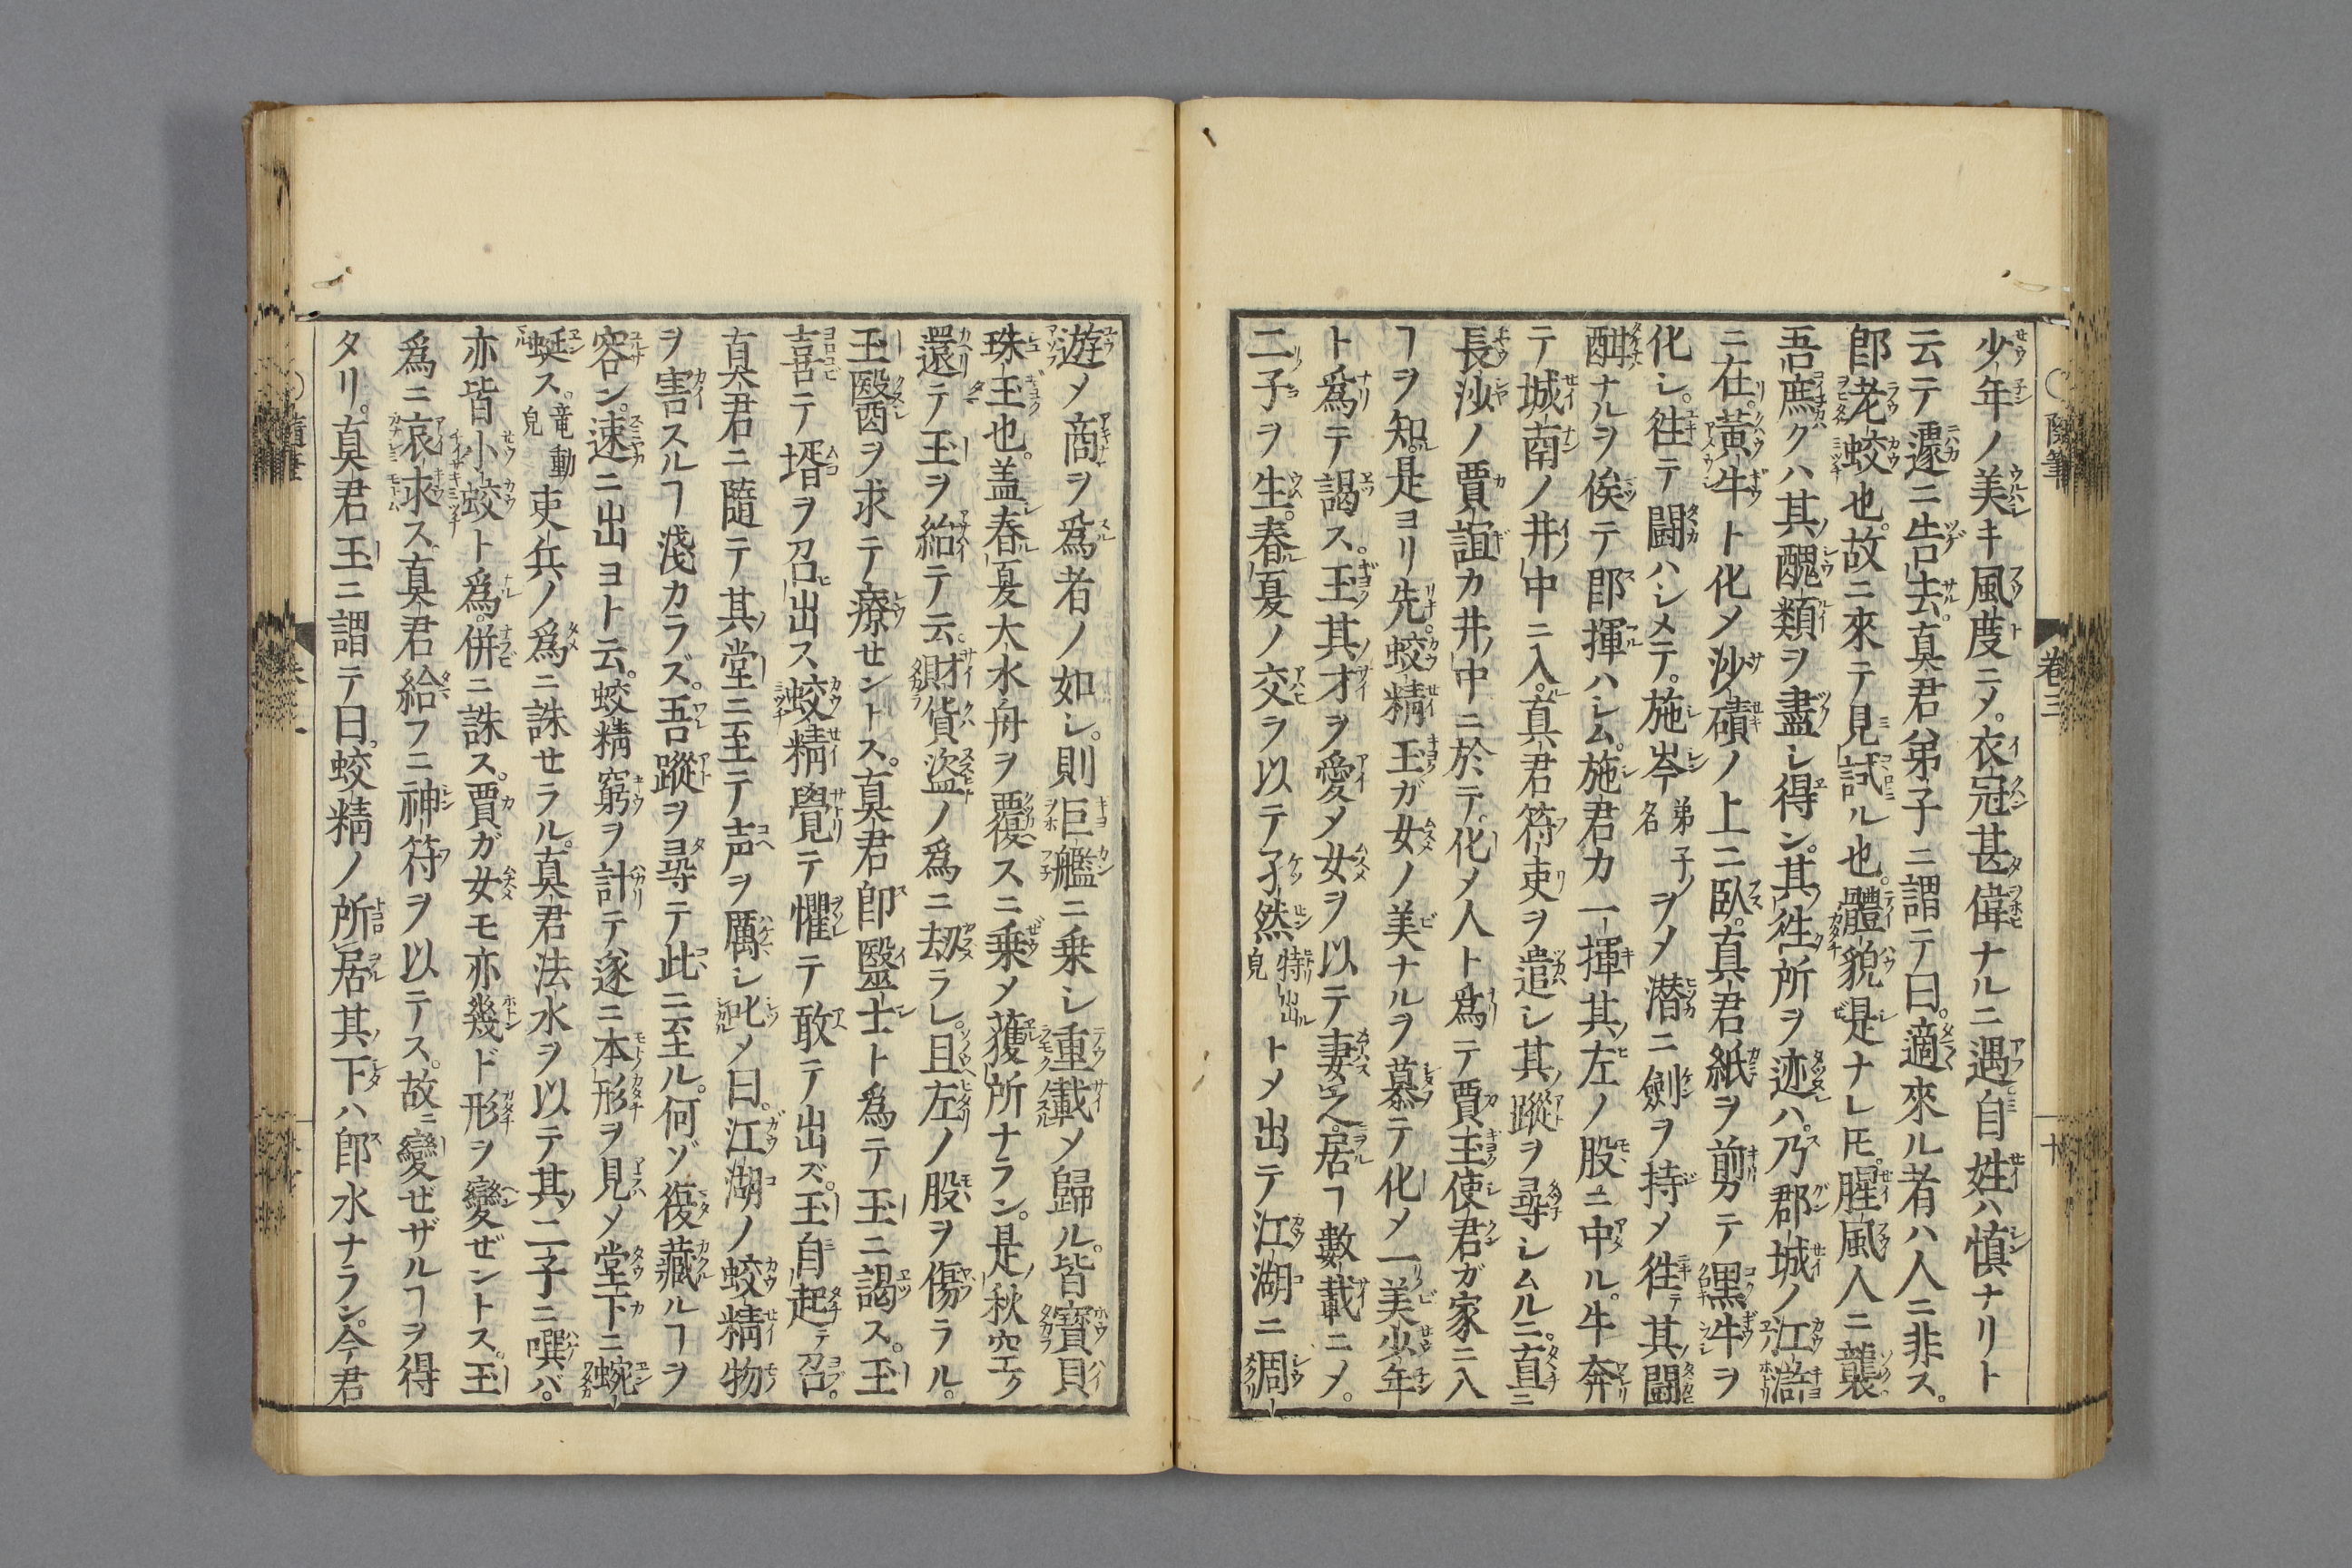 少年ノ美キ風度ニメ。衣冠甚偉ナルニ遇。自姓ハ慎ナリト
云テ遽ニ告去。真君弟子ニ謂テ曰。適來ル者ハ人ニ非ス。
郎老蛟也。故ニ來テ見試ル也。體貌是ナレ𪜈。腥風人ニ襲
吾庶クハ其醜類ヲ盡シ得ン。其徃所ヲ迹ハ。乃郡城ノ江滸
ニ在。黃牛ト化メ沙磧ノ上ニ臥。真君紙ヲ剪テ黑牛ヲ
化シ。徃テ闘ハシメテ。施岑弟子ノ名ヲメ潜ニ劍ヲ持メ徃テ其闘
酣ナルヲ俟テ即揮ハシム。施君カ一揮其左ノ股ニ中ル。牛奔
テ城南ノ井中ニ入。真君符吏ヲ遣シ其蹤ヲ尋シムルニ。直ニ
長沙ノ賈誼カ井中ニ於テ。化メ人ト爲テ賈玉使君ガ家ニ入
ヿヲ知。是ヨリ先。蛟精玉ガ女ノ美ナルヲ慕テ化メ一美少年
ト爲テ謁ス。玉其才ヲ愛メ女ヲ以テ妻之。居ヿ數載ニメ。
二子ヲ生。春夏ノ交ヲ以テ孑然特出ル皃トメ出テ江湖ニ周
遊メ商ヲ爲者ノ如シ。則巨艦ニ乗シ重載メ歸ル。皆寶貝
珠玉也。盖春夏大水舟ヲ覆スニ乗メ獲所ナラン。是秋空ク
還テ玉ヲ紿テ云。財貨盗ノ爲ニ刼ラレ。且左ノ股ヲ傷ラル。
玉醫ヲ求テ療セントス。真君即醫士ト爲テ玉ニ謁ス。玉
喜テ壻ヲ召出ス。蛟精覺テ懼テ敢テ出ズ。玉自起テ召。
真君ニ隨テ其堂ニ至テ声ヲ厲シ叱メ曰。江湖ノ蛟精物
ヲ害スルヿ淺カラズ。吾蹤ヲ尋テ此ニ至ル。何ゾ復藏ルヿヲ
容ン。速ニ出ヨト云。蛟精窮ヲ計テ遂ニ本形ヲ見メ堂下ニ蜿
蜒ス。竜動皃吏兵ノ爲ニ誅セラル。真君法水ヲ以テ其二子ニ噀バ。
亦皆小蛟ト爲。併ニ誅ス。賈ガ女モ亦幾ド形ヲ變ゼントス。玉
爲ニ哀求ス。真君給フニ神符ヲ以テス。故ニ變ゼザルヿヲ得
タリ。真君玉ニ謂テ曰。蛟精ノ所居其下ハ即水ナラン。今君
隨筆
卷三
十